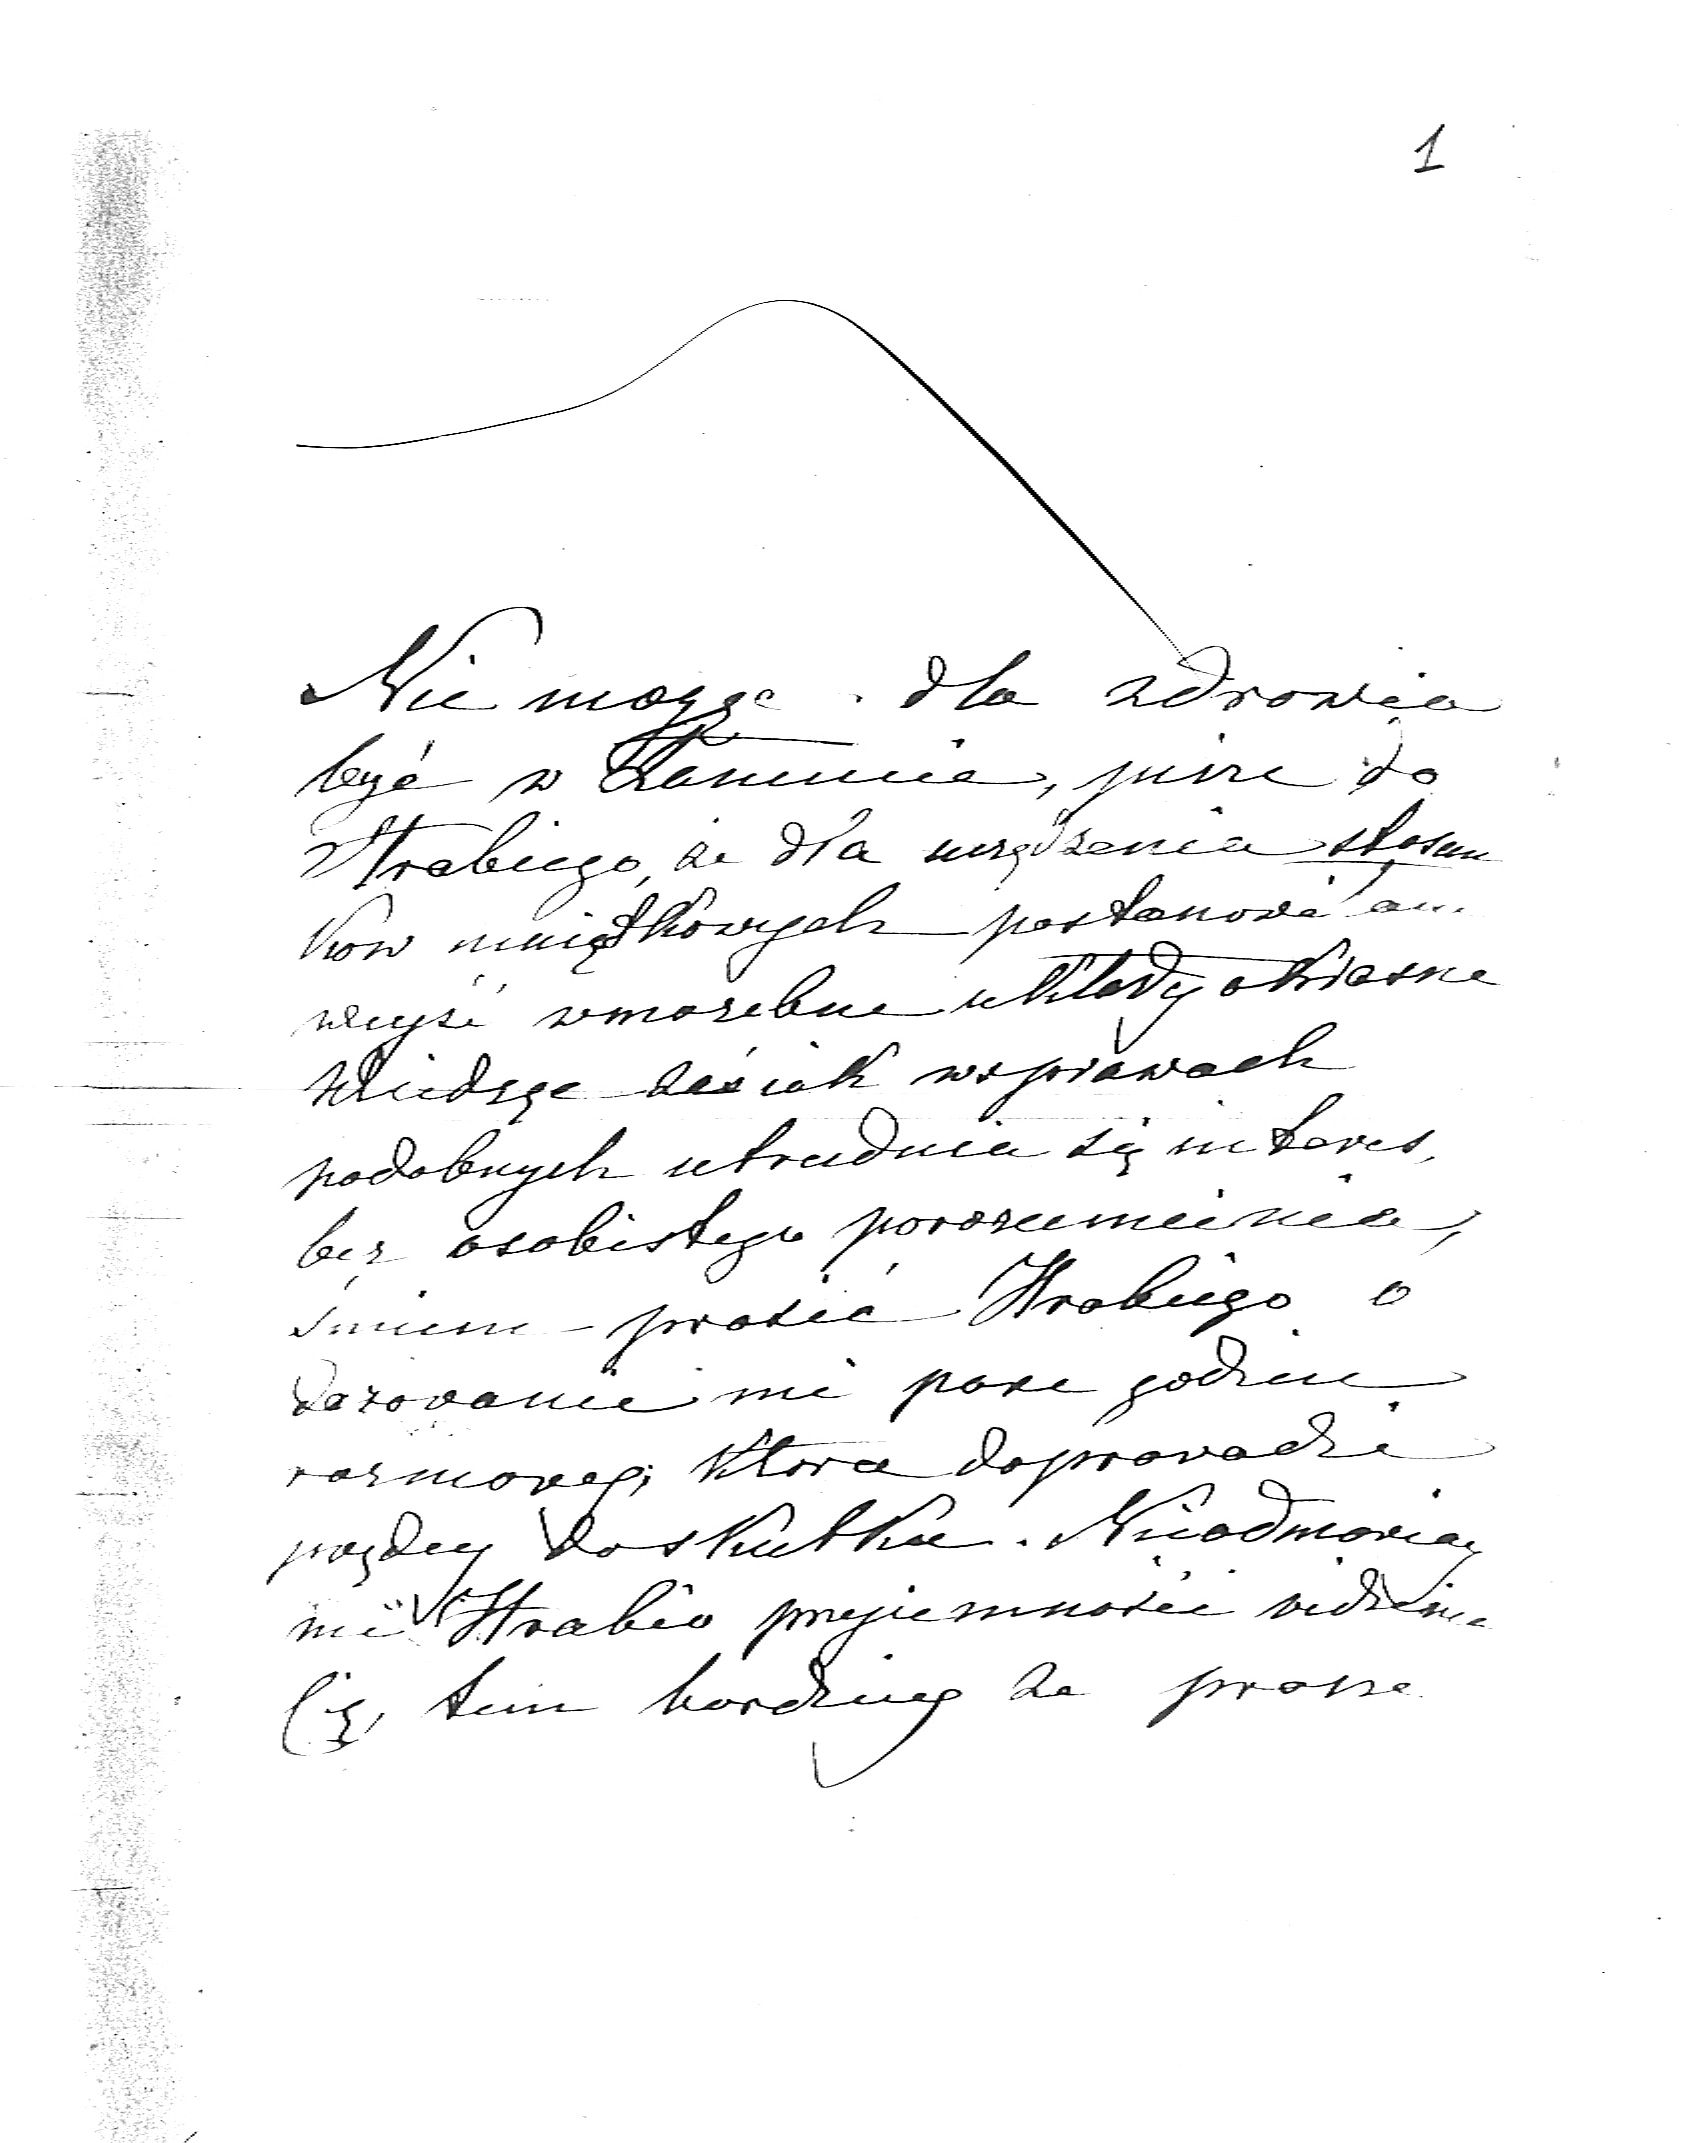 1
Nie mogąc dla zdrowia
być w, pisze do
Hrabiego, że dla urządzenia stosun
ków majątkowych postanowiłam
wejść w możebne układy o Krasne
Wiedząc zaś jak w sprawach
podobnych utrudnia się interes,
bez osobistego porozumienia,
śmiem prosić Hrabiego o
darowanie mi pare godzin
rozmowy, która doprowadzi
prędzej do skutku. Nie odmawiaj
mi Hrabio przyjemności widzenia
Cię, tem bardziej że prosze